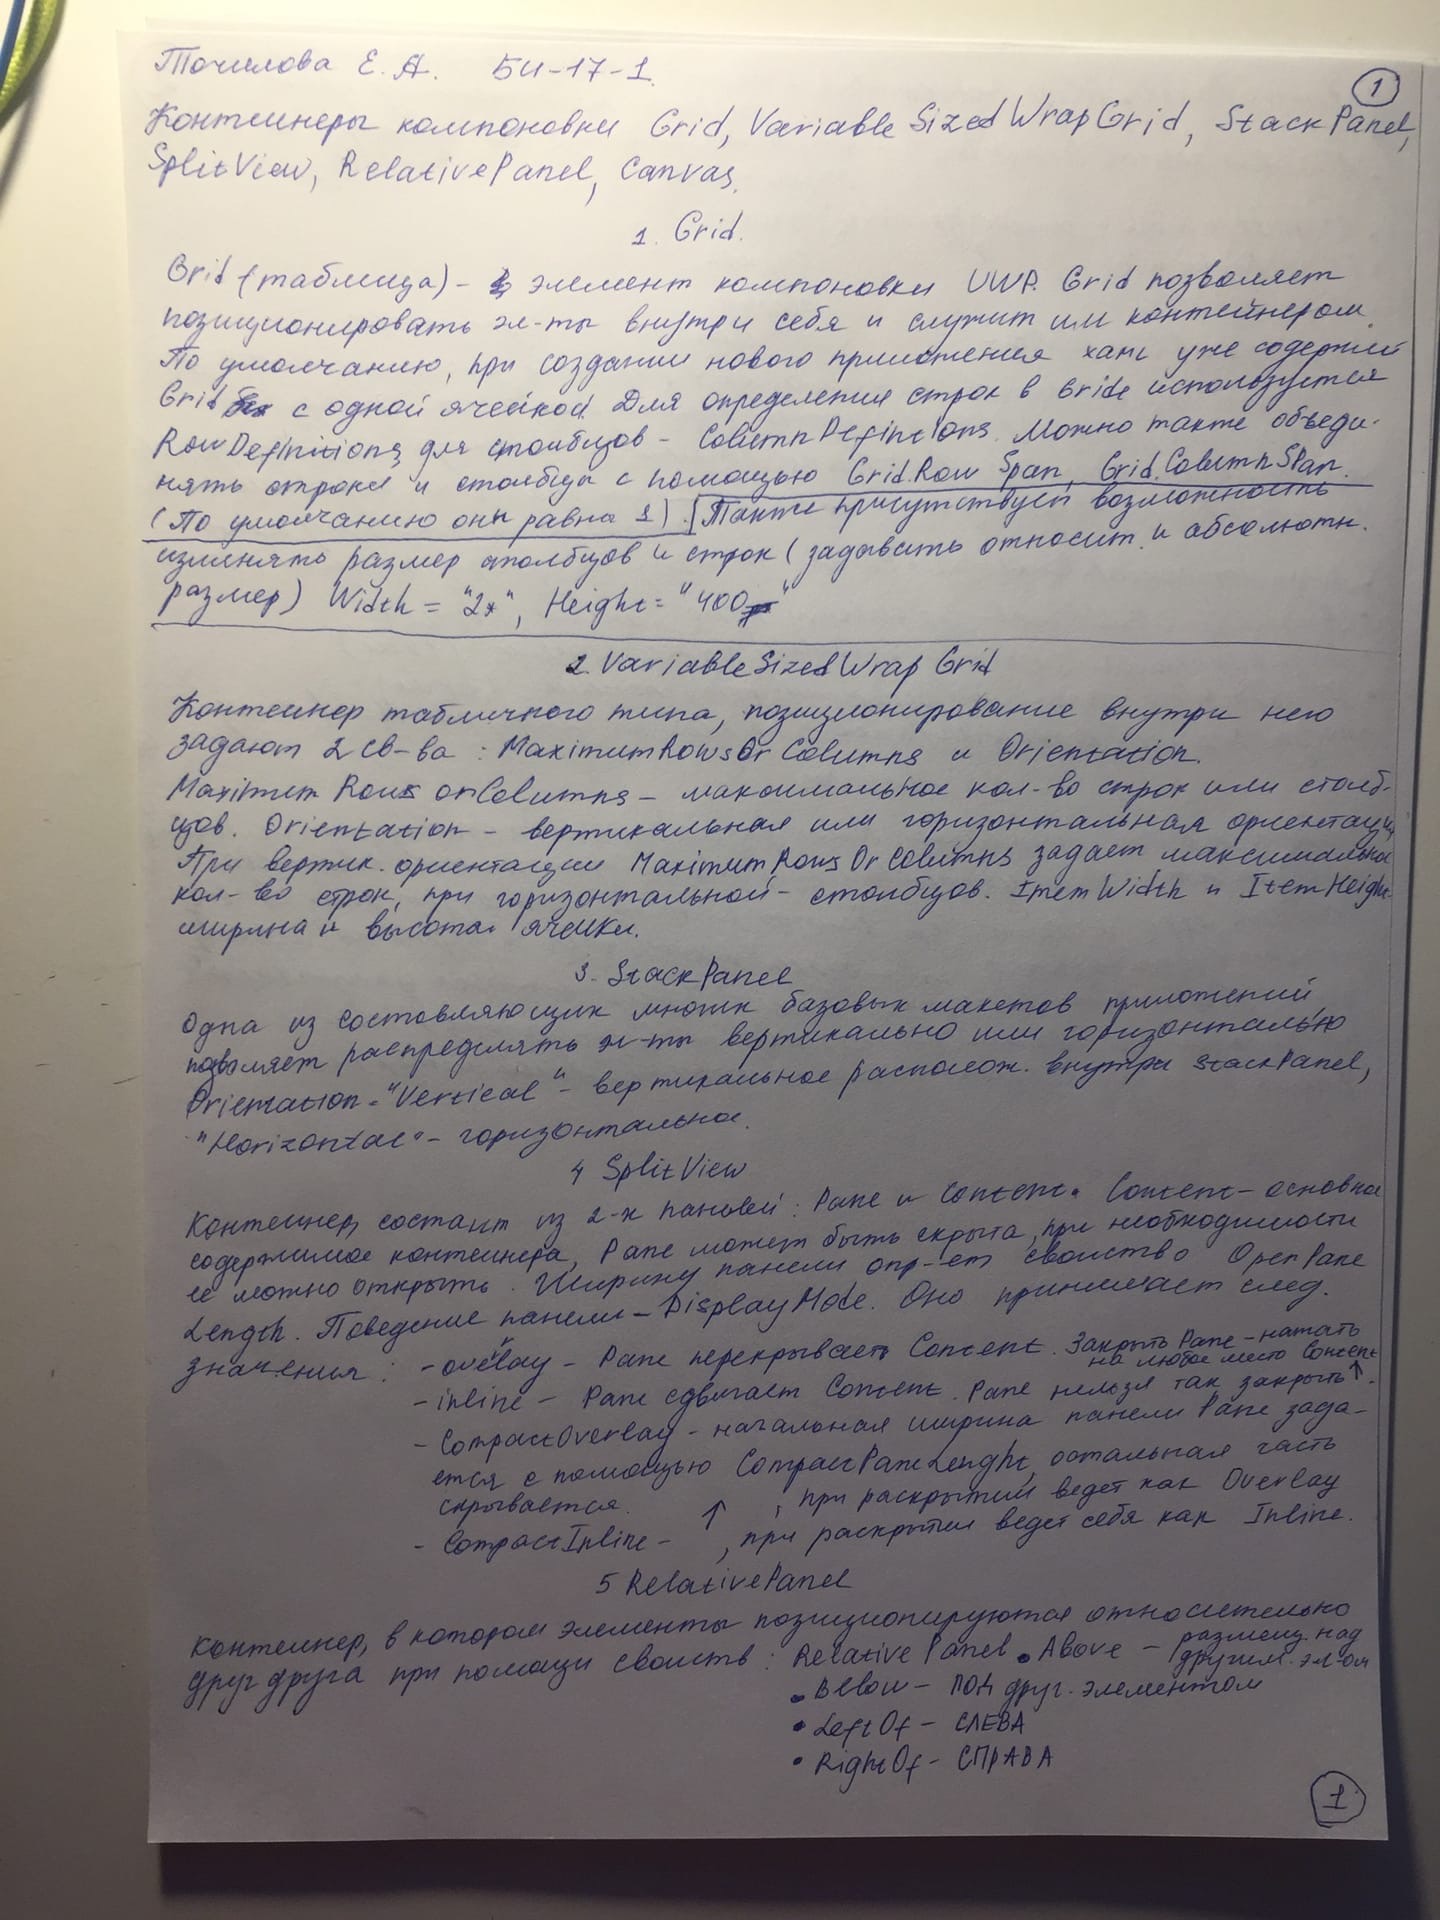 Точилова Е. А. БИ-17-1.
1
Контейнеры компоновки Grid, VariableSizedWrapGrid, StackPanel,
SplitView, RelativePanel, Canvas.
1. Grid.
Grid (таблица) - элемент компоновки UWP. Grid позволяет
позиционировать эл-ты внутри себя и служит им контейнером.
По умолчанию, при создании нового приложения xaml уже содержит
Grid с одной ячейкой. Для определения строк в Gride используется
RowDefinitions, для столбцов - ColumnDefinitions. Можно также объеди-
нять строки и столбцы с помощью Grid.Row Span, Grid.ColumnSpan.
(По умолчанию они равна 1). Также присутствует возможность
изменять размер столбцов и строк (задавать относит. и абсолютн.
размер) Width = "2*", Height = "400"
2. VariableSizedWrap Grid
Контейнер табличного типа, позиционирование внутри него
задают 2 св-ва : MaximumRowsOrColumns и Orientation.
Maximum Rows orColumns - максимальное кол-во строк или столб-
цов. Orientation - вертикальная или горизонтальная ориентация.
При вертик. ориентации MaximumRowsOrColumns задает максимальное
кол-во строк, при горизонтальной - столбцов. ItemWidth и ItemHeight-
ширина и высота ячейки.
3. StackPanel
Одна из составляющих многих базовых макетов приложений,
позволяет распределять эл-ты вертикально или горизонтально
Orientation = "Vertical" - вертикальное располож. внутри StackPanel,
"Horizontal" - горизонтальное.
4 SplitView
Контейнер, состоит из 2-х панелей : Pane и Content. Content - основное
содержимое контейнера, Pane может быть скрыта, при необходимости
ее можно открыть. Ширину панели опр-ет свойство OpenPane
Length. Поведение панели - DisplayMode. Оно принимает след.
значения : - overlay - Pane перекрывает Content. Закрыть Pane - нажать
на любое место Content
- inline - Pane сдвигает Content. Pane нельзя так закрыть ↑.
- CompactOverlay - начальная ширина панели Pane зада-
ется с помощью CompactPaneLenght, остальная часть
скрывается. ↑ , при раскрытии ведет как Overlay
- CompactInline - , при раскрытии ведет себя как Inline.
5 RelativePanel
Контейнер, в котором элементы позиционируются относительно
друг друга при помощи свойств : Relative Panel • Above - размещ. над
другим. эл-ом
• Below - ПОД друг. элементом
• LeftOf - СЛЕВА
• RightOf - СПРАВА
1